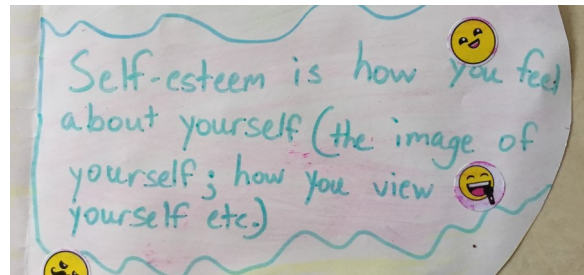 Self-esteem is how you feel
about yourself (the image of
yourself; how you view
yourself etc.)